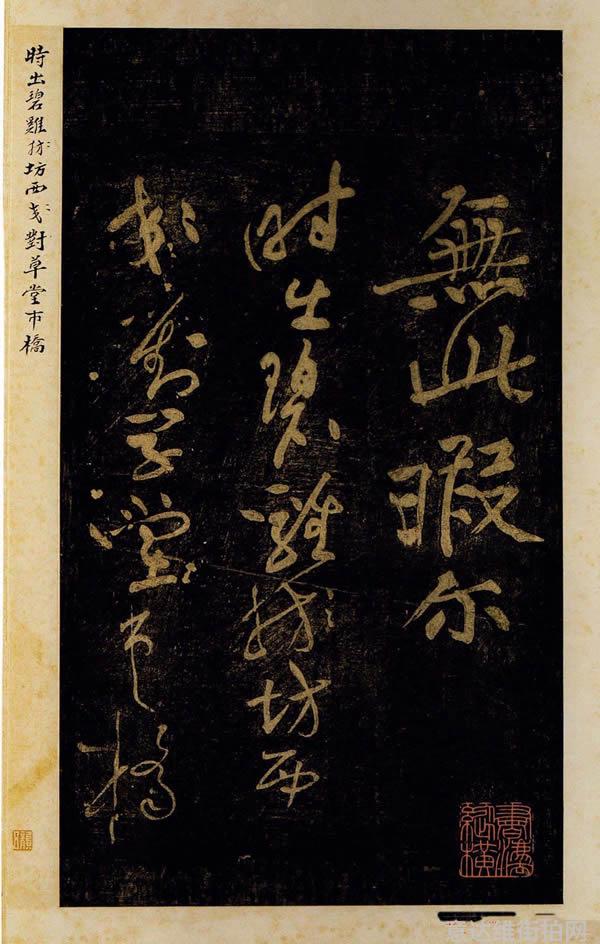 無此暇尔
時出碧雞坊西
郊對草堂市橋
時出碧雞坊西對草堂市橋
街拍网